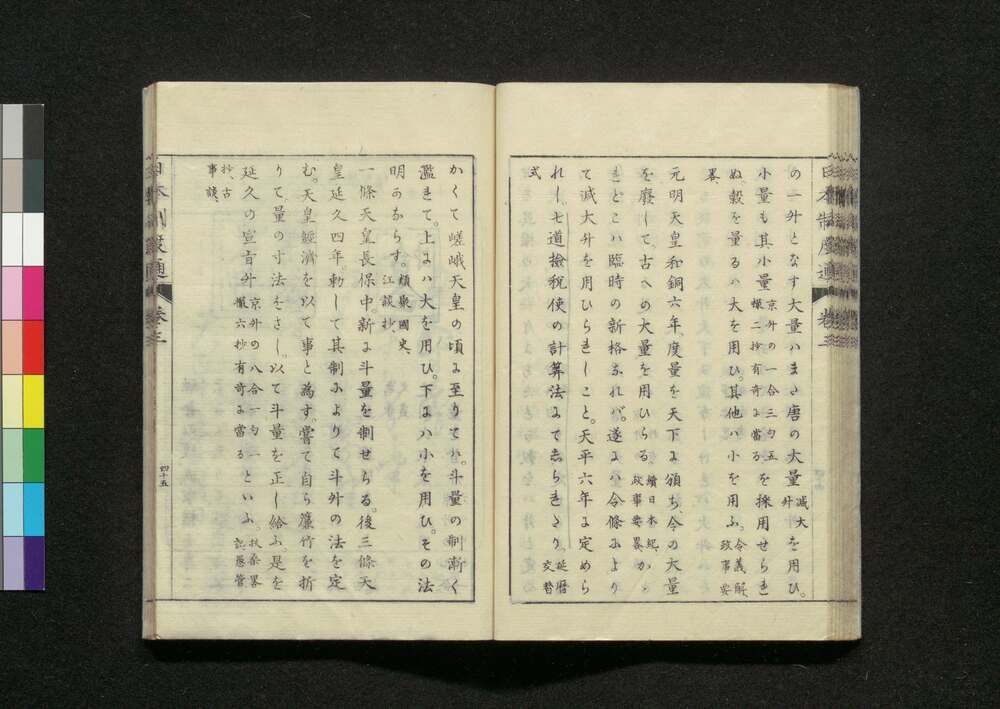 日本制度通 卷三
の一升となす大量ハまた唐の大量減大升を用ひ。
小量も其小量京升の一合三勺五撮二抄有奇に當るを採用せられ
ぬ、穀を量るハ大を用ひ、其他ハ小を用ふ。令義解、政事要
畧、
元明天皇和銅六年、度量を天下に頒ち、令の大量
を廢して、古への大量を用ひらる續日本紀、政事要畧、かゝ
れども
て減大升を用ひられしこと。天平六年に定めら
れし、七道撿税使の計算法にてしられたり。延曆交替
式
かくて嵯峨天皇の頃に至りてハ。斗量の制漸く
濫きて。上にハ大を用ひ。下にハ小を用ひ。その法
明ならず。類聚國史、江談抄、
一條天皇長保中。新に斗量を制せらる。後三條天
皇延久四年。勅して其制によりて斗升の法を定
む。天皇經濟を以て事と為す。嘗て自ら簾竹を折
りて、量の寸法をさし。以て斗量を正し給ふ、是を
延久の宣旨升京升の八合一勺一撮六抄有奇に當るといふ。扶桑畧記、愚管
抄、古
事談、
日本制度通 卷三
四十五